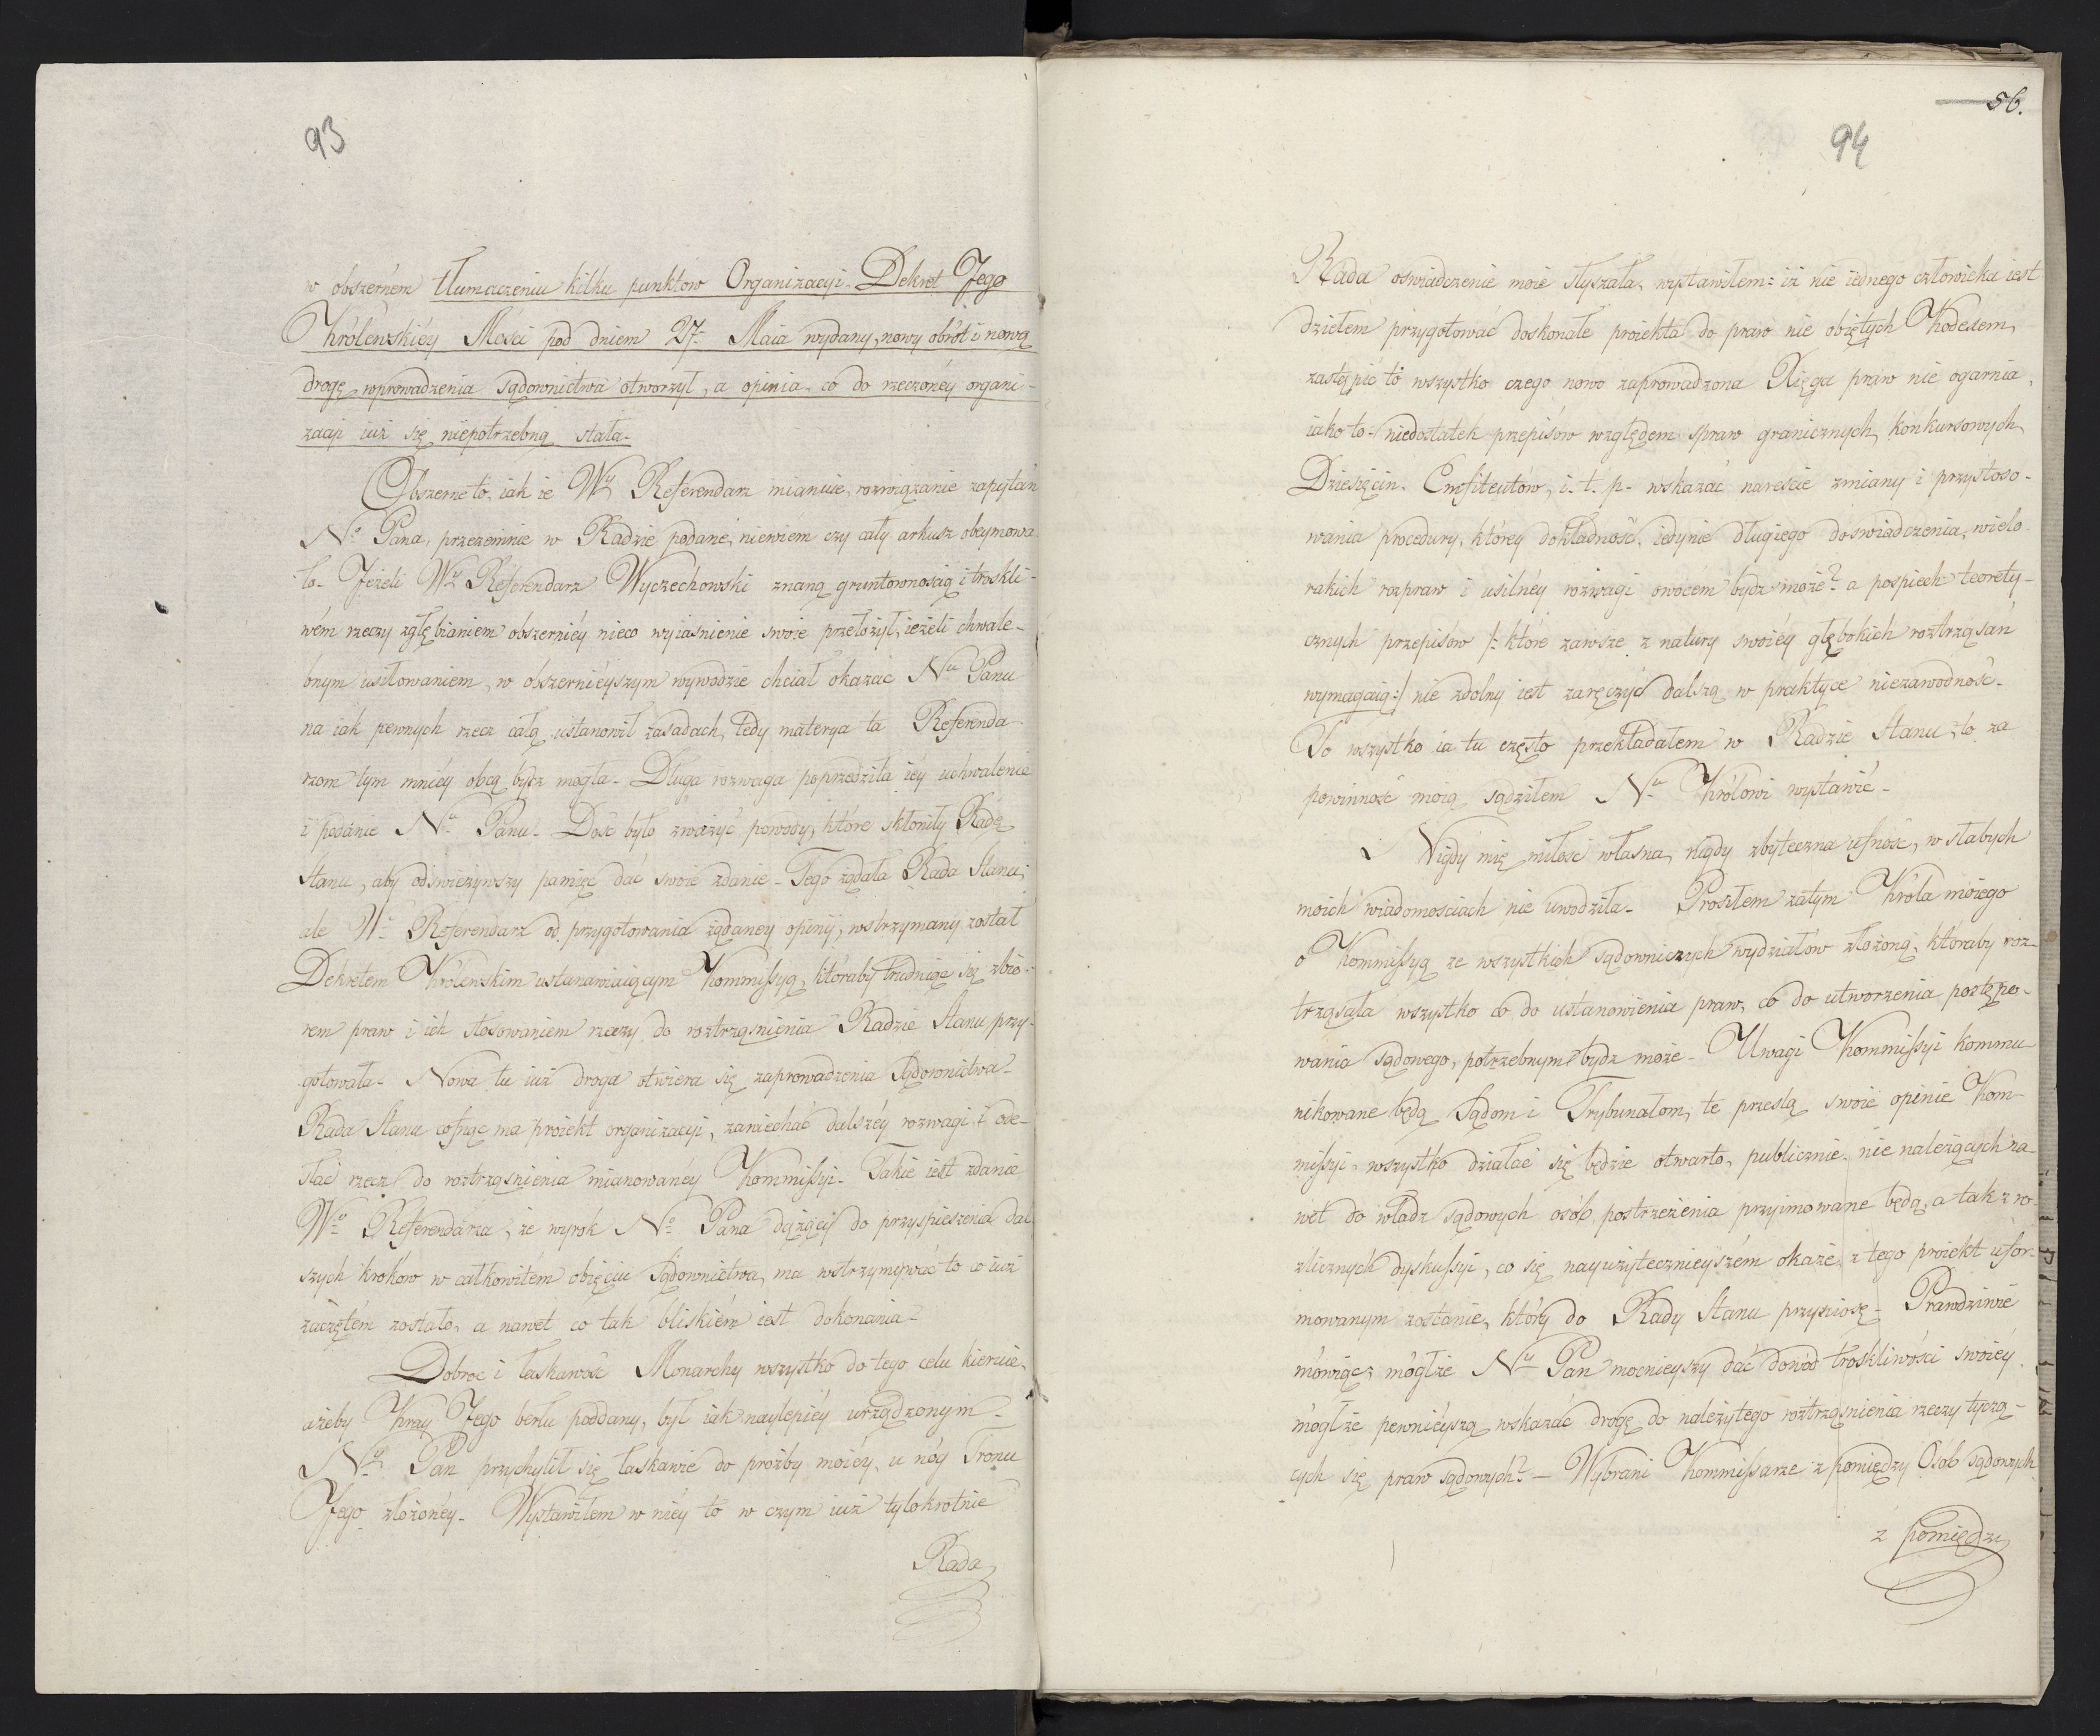 93
w obszernem tłumaczeniu kilku punktow Organizacyi. Dekret Jego
Królewskiéy Mości pod dniem 27. Maia wydany, nowy obrót i nową
drogę wprowadzenia sądownictwa otworzył, a opinia co do rzeczonéy organi-
zacyi iuż się niepotrzebną stała.
Obszerne to, iak ie Wy Referendarz mianuie, rozwiązanie zapytań
No Pana, przezemnie w Radzie podane, niewiem czy cały arkusz obeymowa-
ło. Jeżeli Wy Referendarz Wyczechowski znaną gruntownością i troskli-
wém rzeczy zgłębianiem obszerniéy nieco wyiasnienie swoie przełożył, ieżeli chwale-
bnym usiłowaniem, w obszernieyszym wywodzie chciał okazac Nu Panu
na iak pewnych rzecz całą ustanowił zasadach, tedy materya ta Referenda-
rzom tym mniéy obcą bydz mogła. Długa rozwaga poprzedziła iéy uchwalenie
i podanie Nu Panu. Dość było zważyć powody, które skłoniły Radę
Stanu, aby odswieżywszy pamięc dać swoie zdanie. Tego żądała Rada Stanu;
ale Wy Referendarz od przygotowania żądaney opinii, wstrzymany został
Dekretem Królewskim ustanawiaiącym Kommissyą, któraby trudniąc się zbio-
rem praw i ich stosowaniem rzeczy do roztrząsnienia Radzie Stanu przy-
gotowała. Nowa tu iuż droga otwiera się zaprowadzenia Sądownictwa.
Rada Stanu cofnąc ma proiekt organizacyi, zaniechać dalszéy rozwagi i ode-
słać rzecz do roztrząsnienia mianowanéy Kommissyi. Takie iest zdanie
Wo Referendarza, że wyrok No Pana dążący do przyspieszenia dal-
szych kroków w całkowitém obięciu Sądownictwa, ma wstrzymywać to co iuż
zaczętém zostało, a nawet co tak bliskiém iest dokonania.
Dobroc i łaskawość Monarchy wszystko do tego celu kieruie,
ażeby Kray Jego berłu poddany, był iak naylepiéy urządzonym.
Ny Pan przychylił się łaskawie do prożby moiéy, u nóg Tronu
Jego złożonéy. Wystawiłem w niéy to w czym iuż tylokrotnie
Rada
56.
94
Rada oswiadczenie moie słyszała, wystawiłem: iż nie iednego człowieka iest
dziełem przygotować doskonałe proiekta do praw nie obiętych Kodexem,
zastępić to wszystko czego nowo zaprowadzona Xięga praw nie ogarnia,
iako to: niedostatek przepisów względem spraw granicznych, konkursowych,
Dziesięcin, Emfiteutów, i. t. p. wskazać nareście zmiany i przystoso-
wania procedury, którey dokładność, iedynie długiego doswiadczenia, wielo-
rakich rozpraw i usilnéy rozwagi owocem bydz może? a pospiech teorety-
cznych przepisów /: które zawsze z natury swoiéy głębokich roztrząsań
wymagaią :/ nie zdolny iest zaręczyć dalszą w praktyce niezawodność.
To wszystko ia tu często przekładałem w Radzie Stanu, to za
powinność moią sądziłem Nu Królowi wystawić.
Nigdy mię miłość własna, nigdy zbyteczna ufność, w słabych
moich wiadomosciach nie uwodziła. Prosiłem zatym Króla moiego
o Kommissyą ze wszystkich sądowniczych wydziałów złożoną, któraby roz-
trząsała wszystko co do ustanowienia praw, co do utworzenia postępo-
wania sądowego, potrzebnym bydz może. Uwagi Kommissyi kommu-
nikowane będą Sądom i Trybunałom, te przeslą swoie opinie Kom-
missyi, wszystko działać się będzie otwarto, publicznie, nie należących na-
wet do władz sądowych osób, postrzeżenia przyimowane będą, a tak z ro-
zlicznych dyskussyi, co się nayużytecznieyszém okaże, z tego proiekt ufor-
mowanym zostanie, który do Rady Stanu przyniosę. Prawdziwie
mówiąc, mógłże Ny Pan mocnieyszy dać dowód troskliwości swoiéy,
mógłże pewnieyszą wskazać drogę do należytego roztrząsnienia rzeczy tyczą-
cych się praw sądowych? — Wybrani Kommissarze z pomiędzy Osob sądowych
z pomiędzy